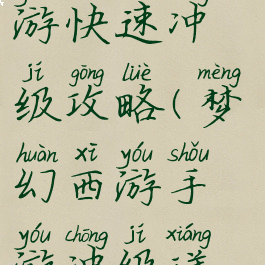 游快速冲
jí gōng lüè mèng
级攻略(梦
huàn xī yóu shǒu
幻西游手
yóu chōng jí xiáng
游冲级详